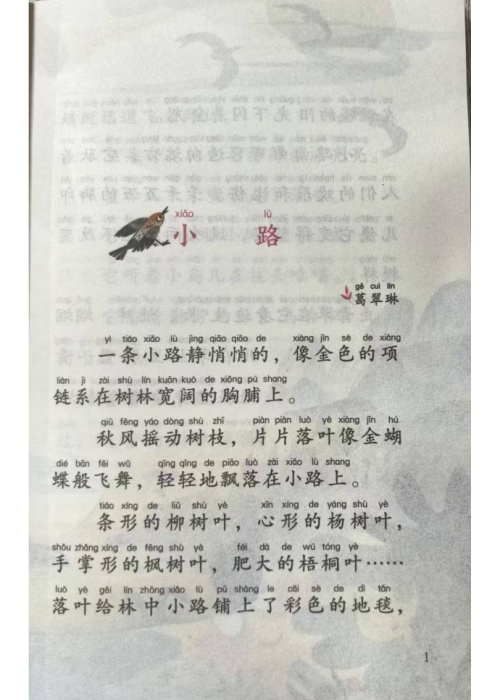 xiǎo lù
小 路
gě cuì lín
葛翠琳
yì tiáo xiǎo lù jìng qiāo qiāo de xiàng jīn sè de xiàng
一条小路静悄悄的，像金色的项
liàn jì zài shù lín kuān kuò de xiōng pú shang
链系在树林宽阔的胸脯上。
qiū fēng yáo dòng shù zhī piàn piàn luò yè xiàng jīn hú
秋风摇动树枝，片片落叶像金蝴
dié bān fēi wǔ qīng qīng de piāo luò zài xiǎo lù shang
蝶般飞舞，轻轻地飘落在小路上。
tiáo xíng de liǔ shù yè xīn xíng de yáng shù yè
条形的柳树叶，心形的杨树叶，
shǒu zhǎng xíng de fēng shù yè féi dà de wú tóng yè
手掌形的枫树叶，肥大的梧桐叶……
luò yè gěi lín zhōng xiǎo lù pū shàng le cǎi sè de dì tǎn
落叶给林中小路铺上了彩色的地毯，
1